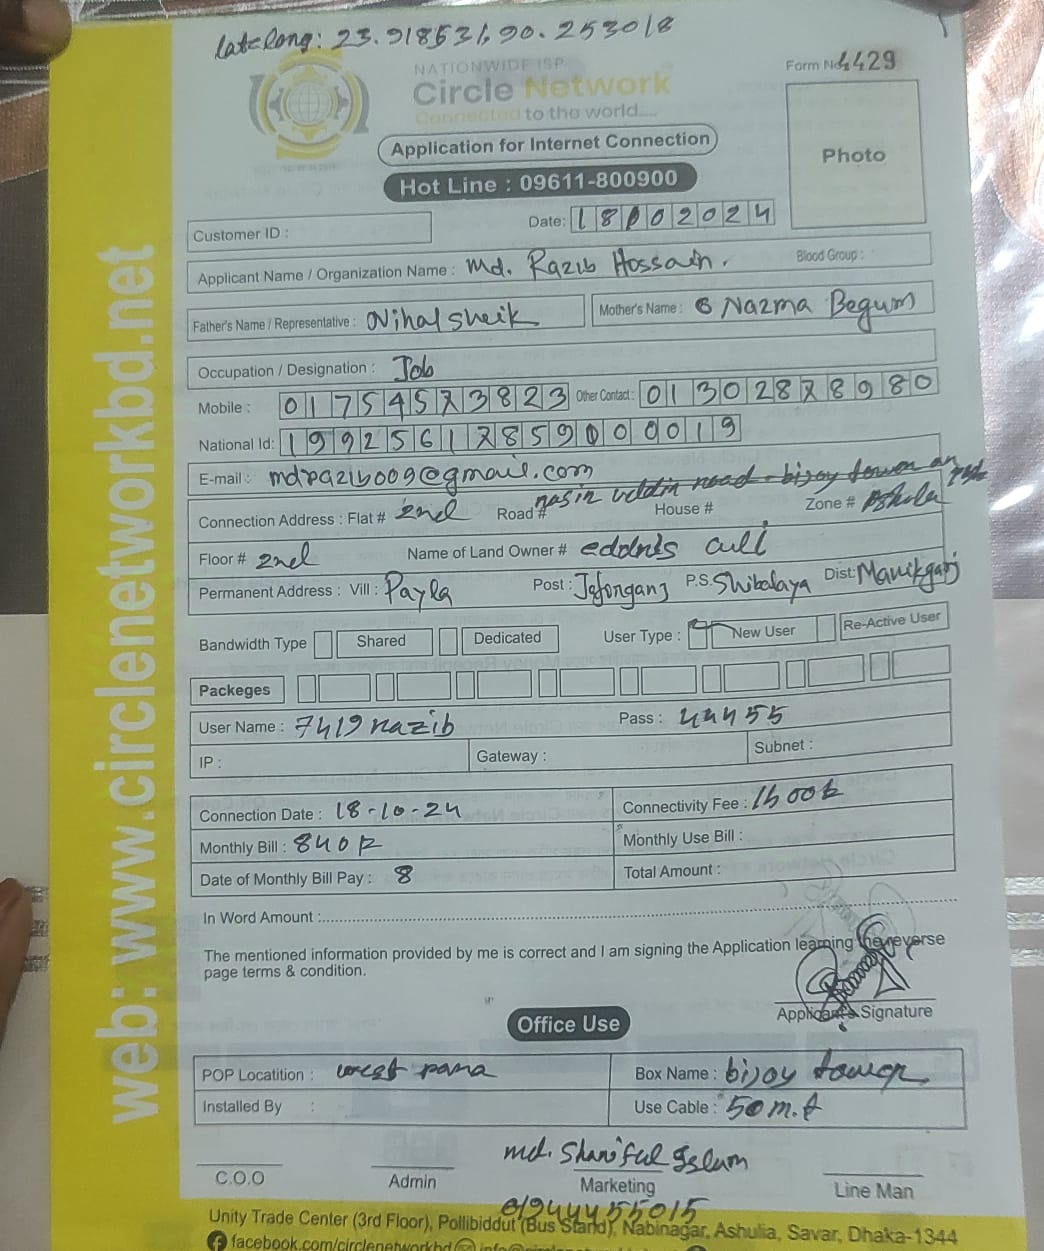 lat&long: 23.918531, 90.253018
NATIONWIDE ISP
Circle Network
Connected to the world....
Form No. 4429
Application for Internet Connection
Photo
Hot Line : 09611-800900
Customer ID :
Date: 18 02024
Applicant Name / Organization Name : Md. Razib Hossain. Blood Group :
Father's Name / Representative : Nihal sheik Mother's Name : Nazma Begum
Occupation / Designation : Job
Mobile : 01754573823 Other Contact : 01302878980
National Id: 19925617859000019
E-mail : mdrazib009@gmail.com
Connection Address : Flat # 2nd Road # nasir uddin road - bijoy tower House # Zone # Ashulia
Floor # 2nd Name of Land Owner # eddris ali
Permanent Address : Vill : Payla Post : Jafonganj P.S. Shibalaya Dist: Manikganj
Bandwidth Type Shared Dedicated User Type : New User Re-Active User
Packeges
User Name : 7419razib Pass : 44455
IP : Gateway : Subnet :
Connection Date : 18-10-24 Connectivity Fee : 1500tk
Monthly Bill : 840tk Monthly Use Bill :
Date of Monthly Bill Pay : 8 Total Amount :
In Word Amount :
The mentioned information provided by me is correct and I am signing the Application learning the reverse
page terms & condition.
Applicant's Signature
Office Use
POP Locatition : west para Box Name : bijoy tower
Installed By : Use Cable : 50 m.t
md. Shariful Islam
C.O.O Admin Marketing Line Man
01944455015
Unity Trade Center (3rd Floor), Pollibiddut (Bus Stand), Nabinagar, Ashulia, Savar, Dhaka-1344
facebook.com/circlenetworkbd
web: www.circlenetworkbd.net